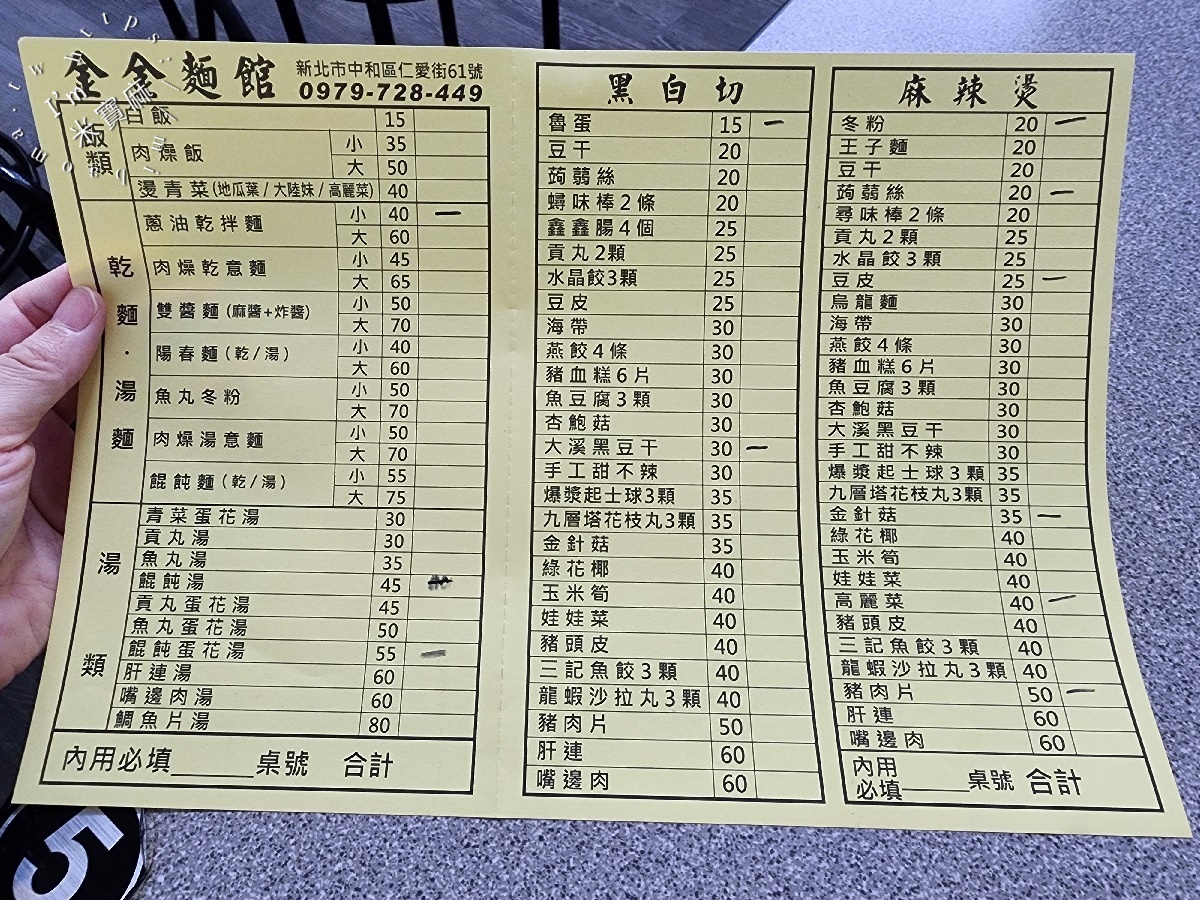 金全麵館
新北市中和區仁愛街61號
0979-728-449
飯類
白飯 15
肉燥飯 小 35
大 50
燙青菜(地瓜葉/大陸妹/高麗菜) 40
乾麵·湯麵
蔥油乾拌麵 小 40 一
大 60
肉燥乾意麵 小 45
大 65
雙醬麵(麻醬+炸醬) 小 50
大 70
陽春麵(乾/湯) 小 40
大 60
魚丸冬粉 小 50
大 70
肉燥湯意麵 小 50
大 70
餛飩麵(乾/湯) 小 55
大 75
湯類
青菜蛋花湯 30
貢丸湯 30
魚丸湯 35
餛飩湯 45
貢丸蛋花湯 45
魚丸蛋花湯 50
餛飩蛋花湯 55 一
肝連湯 60
嘴邊肉湯 60
鯛魚片湯 80
內用必填______桌號 合計
黑白切
魯蛋 15 一
豆干 20
蒟蒻絲 20
蟳味棒2條 20
鑫鑫腸4個 25
貢丸2顆 25
水晶餃3顆 25
豆皮 25
海帶 30
燕餃4條 30
豬血糕6片 30
魚豆腐3顆 30
杏鮑菇 30
大溪黑豆干 30 一
手工甜不辣 30
爆漿起士球3顆 35
九層塔花枝丸3顆 35
金針菇 35
綠花椰 40
玉米筍 40
娃娃菜 40
豬頭皮 40
三記魚餃3顆 40
龍蝦沙拉丸3顆 40
豬肉片 50
肝連 60
嘴邊肉 60
麻辣燙
冬粉 20 一
王子麵 20
豆干 20
蒟蒻絲 20 一
尋味棒2條 20
貢丸2顆 25
水晶餃3顆 25
豆皮 25 一
烏龍麵 30
海帶 30
燕餃4條 30
豬血糕6片 30
魚豆腐3顆 30
杏鮑菇 30
大溪黑豆干 30
手工甜不辣 30
爆漿起士球3顆 35
九層塔花枝丸3顆 35
金針菇 35 一
綠花椰 40
玉米筍 40
娃娃菜 40
高麗菜 40 一
豬頭皮 40
三記魚餃3顆 40
龍蝦沙拉丸3顆 40
豬肉片 50 一
肝連 60
嘴邊肉 60
內用必填______桌號 合計
5